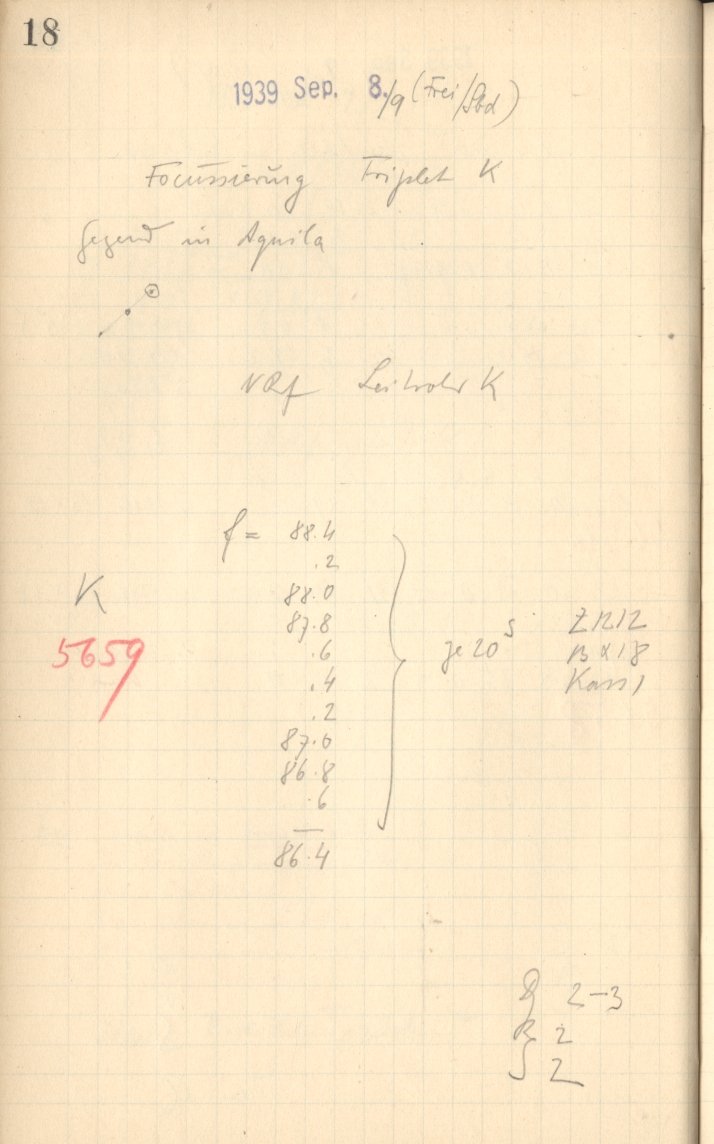 18
1939 Sep. 8./9 (Frei/Sbd)
Focussierung Triplet K
Gegend in Aquila
Leitrohr K
f = 88.4
.2
88.0
87.8
.6
.4
.2
87.0
86.8
.6
86.4
K
5659
je 20s
Kass 1
2-3
R 2
S 2